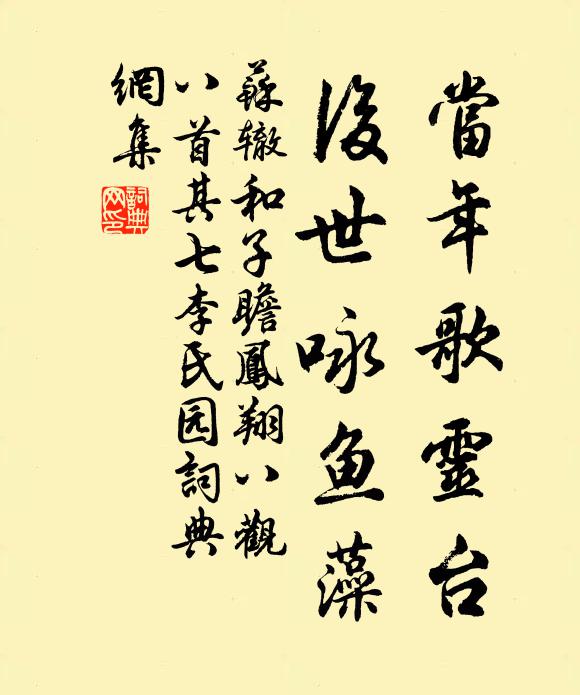 當年歌靈台
後世咏鱼藻
蘇辙和子瞻鳳翔八觀
八首其七李氏园詞典
網集
詞典网印